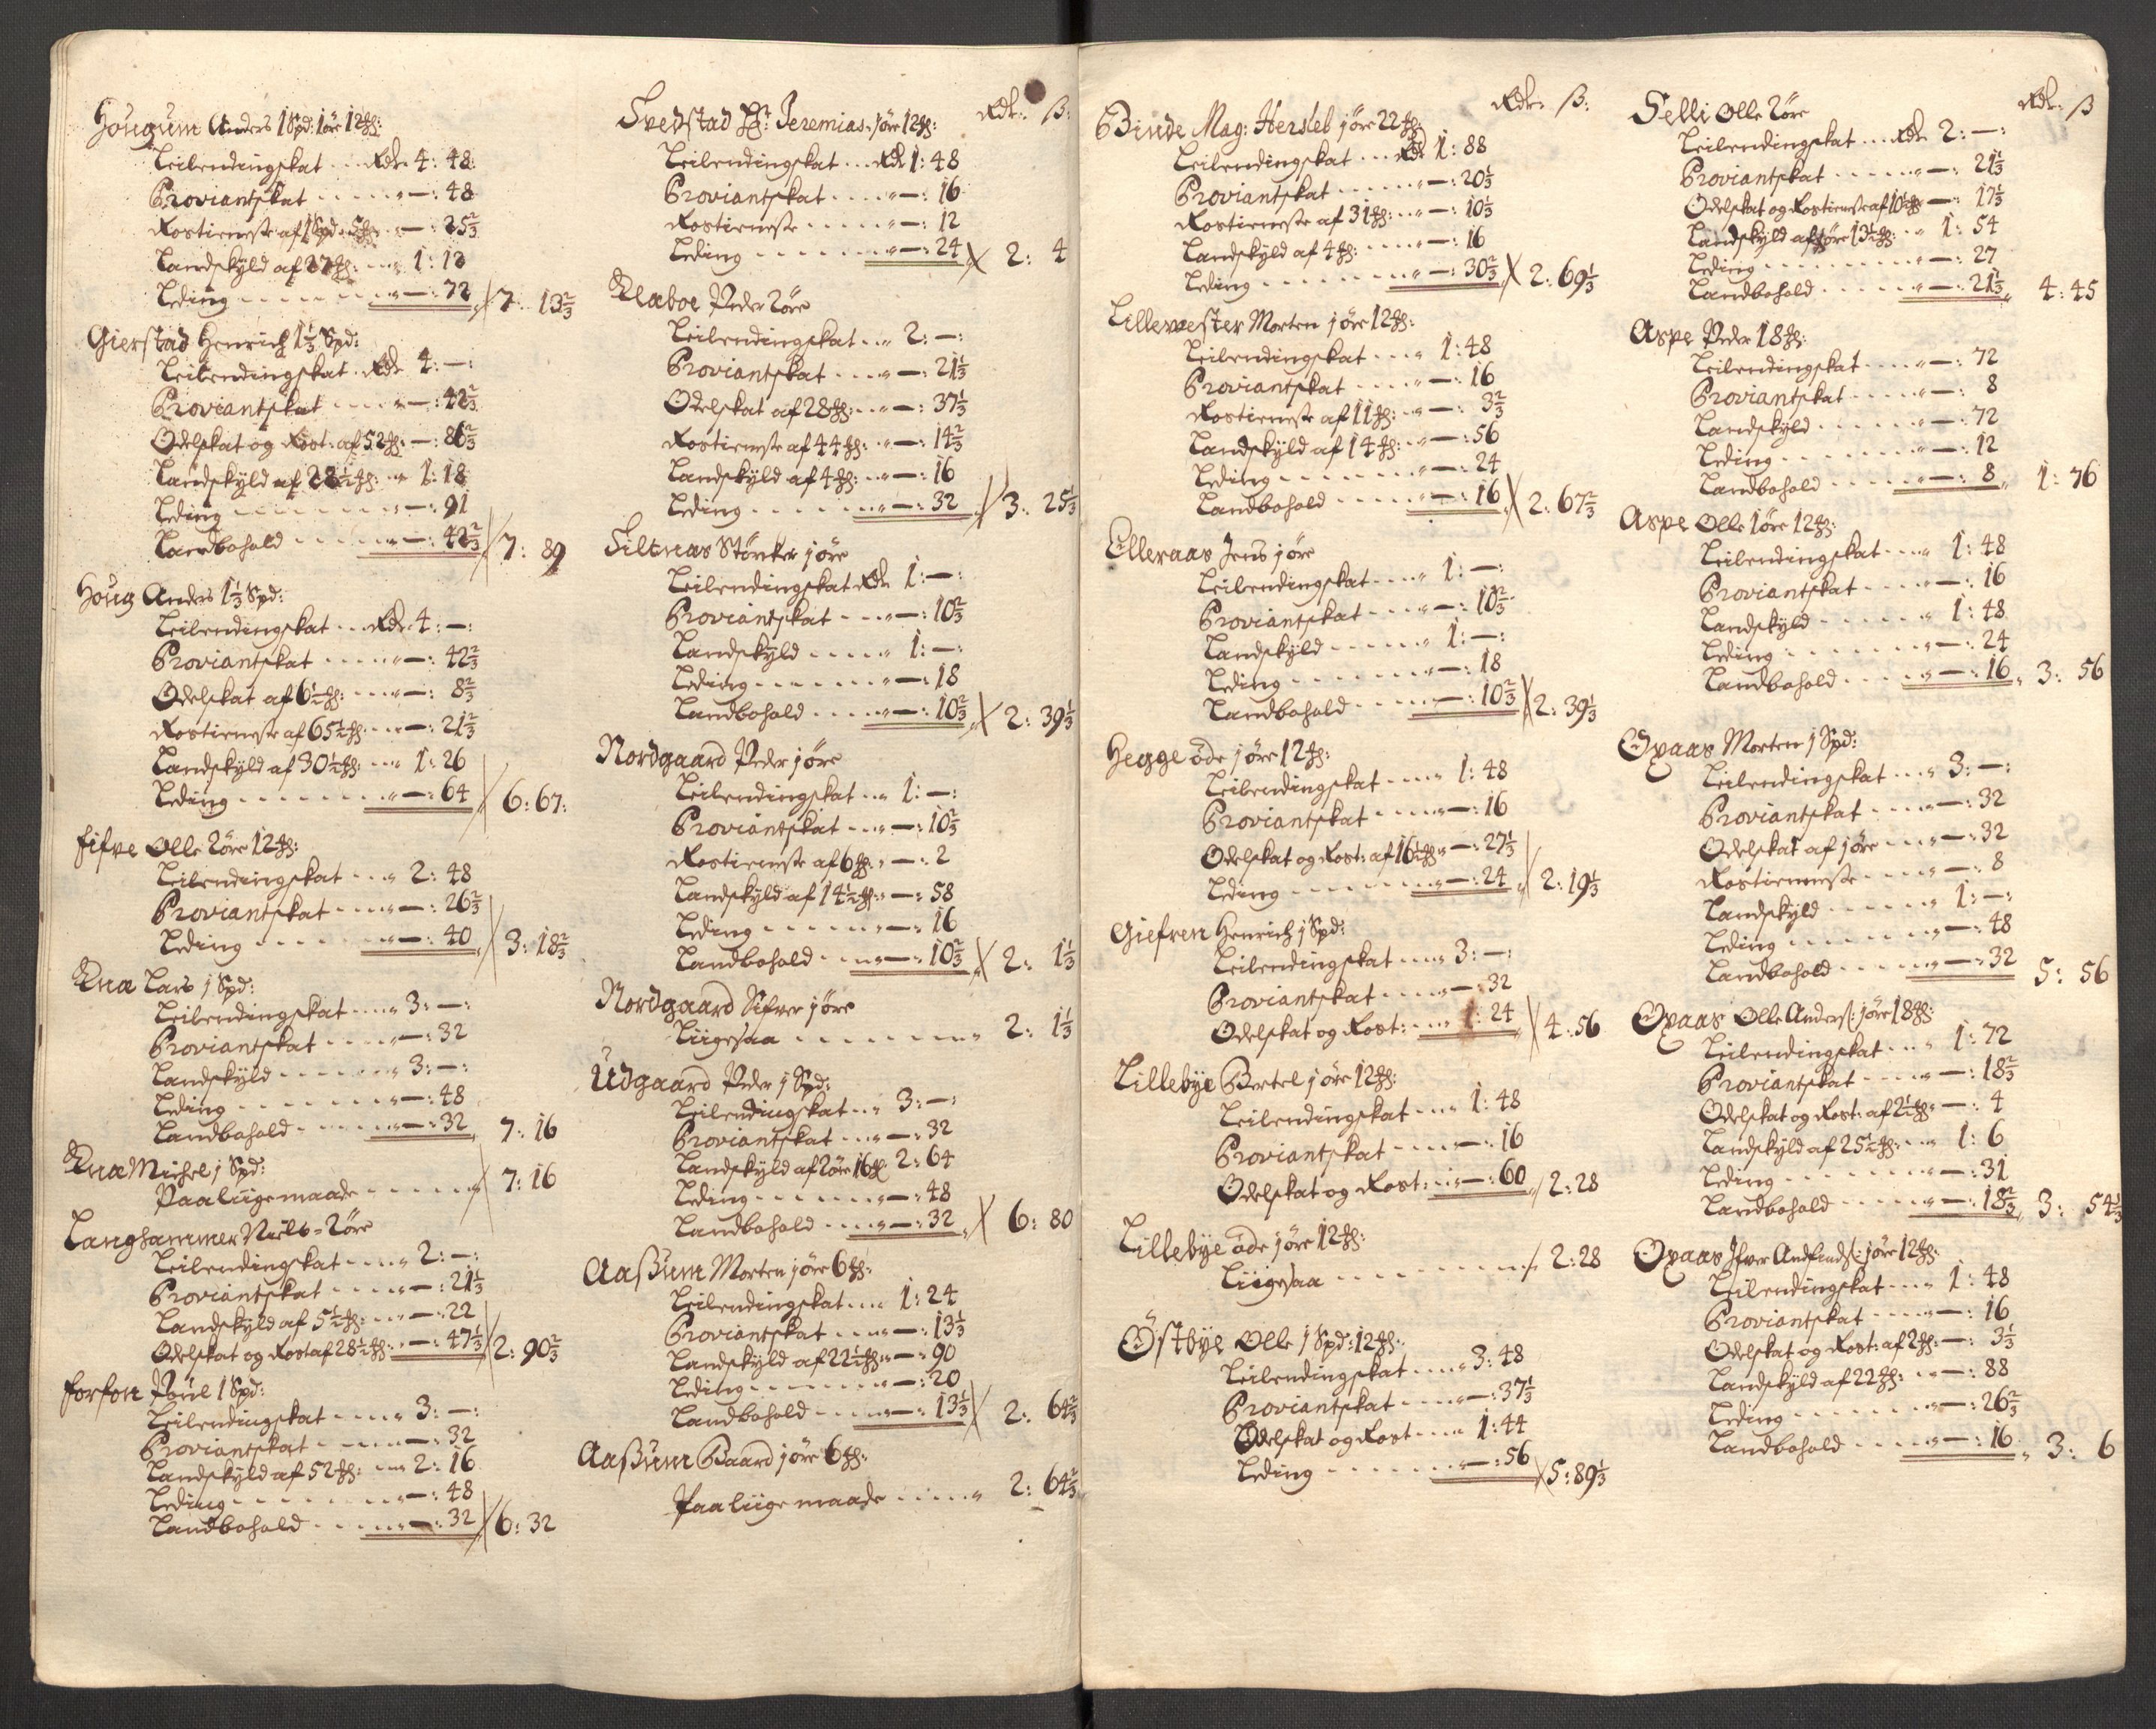 Hougum Anders 1 Spd: 1 øre 12 ꝳ:
Leilendingskat ... Rdr 4: 48
Proviantskat ..... " —: 48
Rostieneste af 1 Spd: 5 ꝳ: " —: 25 2/3
Landskyld af 27 ꝳ: ... " 1: 12
Leding ........ " —: 72 7: 13 2/3
Gierstad Henrich 1 1/3 Spd:
Leilendingskat . Rdr 4: —:
Proviantskat .... " —: 42 2/3
Odelskat og Rost: af 52 ꝳ: —: 86 2/3
Landskyld af 28 1/2 ꝳ: .. " 1: 18
Leding ....... " —: 91
Landbohold ..... " —: 42 2/3 7: 89
Houg Anders 1 1/3 Spd:
Leilendingskat ... Rdr 4: —:
Proviantskat ..... " —: 42 2/3
Odelskat af 6 1/2 ꝳ: .... " —: 8 2/3
Rostieneste af 65 1/2 ꝳ: ... " —: 21 2/3
Landskyld af 30 1/2 ꝳ: ... " 1: 26
Leding ........ " —: 64 6: 67:
Fifve Olle 2 øre 12 ꝳ:
Leilendingskat .... " 2: 48
Proviantskat .... " —: 26 2/3
Leding ....... " —: 40 3: 18 2/3
Knæ Lars j Spd:
Leilendingskat .... " 3: —:
Proviantskat .... " —: 32
Landskyld ...... " 3: —:
Leding ........ " —: 48
Landbohold ...... " —: 32 7: 16
Knæ Michel j Spd:
Paa liige maade ...... " 7: 16
Langhammer Niels 2 øre
Leilendingskat .... " 2: —:
Proviantskat .... " —: 21 1/3
Landskyld af 5 1/2 ꝳ: ... " —: 22
Odelskat og Rost af 28 1/2 ꝳ: .. " —: 47 1/3 2: 90 2/3
Forfon Poul 1 Spd:
Leilendingskat .... " 3: —:
Proviantskat .... " —: 32
Landskyld af 52 ꝳ: ... " 2: 16
Leding ........ " —: 48
Landbohold ..... " —: 32 6: 32
Rdr: ß:
Svedstad Hr: Jeremias jøre 12 ꝳ:
Leilendingskat ... Rdr 1: 48
Proviantskat .... " —: 16
Rostieneste ..... " —: 12
Leding ....... " —: 24 2: 4
Klæboe Peder 2 øre
Leilendingskat ... " 2: —:
Proviantskat .... " —: 21 1/3
Odelskat af 28 ꝳ: ... " —: 37 1/3
Rostieneste af 44 ꝳ: .. " —: 14 2/3
Landskyld af 4 ꝳ: ... " —: 16
Leding ....... " —: 32 3: 25 1/3
Filtnæs Størcker jøre
Leilendingskat Rdr 1: —:
Proviantskat .... " —: 10 2/3
Landskyld ..... " 1: —:
Leding ....... " —: 18
Landbohold ..... " —: 10 2/3 2: 39 1/3
Nordgaard Peder jøre
Leilendingskat ... " 1: —:
Proviantskat .... " —: 10 2/3
Rostieneste af 6 ꝳ: " —: 2
Landskyld af 14 1/2 ꝳ: " —: 58
Leding ...... " —: 16
Landbohold .... " —: 10 2/3 2: 1 1/3
Nordgaard Sifver jøre
Liigesaa ......... " 2: 1 1/3
Udgaard Peder j Spd:
Leilendingskat .. " 3: —:
Proviantskat .... " —: 32
Landskyld af 2 øre 16 ꝳ 2: 64
Leding ....... " —: 48
Landbohold ..... " —: 32 6: 80
Aaßum Morten jøre 6 ꝳ:
Leilendingskat ... " 1: 24
Proviantskat .... " —: 13 1/3
Landskyld af 22 1/2 ꝳ: " —: 90
Leding ....... " —: 20
Landbohold ..... " —: 13 1/3 2: 64 2/3
Aaßum Baard jøre 6 ꝳ:
Paa liige maade ..... " 2: 64 2/3
Rdr: ß:
Binde Mag: Hersleb jøre 22 ꝳ:
Leilendingskat ... Rdr 1: 88
Proviantskat ..... " —: 20 1/3
Rostieneste af 31 ꝳ: ... " —: 10 1/3
Landskyld af 4 ꝳ: .... " —: 16
Leding ....... " —: 30 2/3 2: 69 1/3
Lillevester Morten jøre 12 ꝳ:
Leilendingskat .... " 1: 48
Proviantskat .... " —: 16
Rostieneste af 11 ꝳ: .. " —: 3 2/3
Landskyld af 14 ꝳ: .. " —: 56
Leding ....... " —: 24
Landbohold ..... " —: 16 2: 67 2/3
Elleraas Jens jøre
Leilendingskat .... " 1: —:
Proviantskat .... " —: 10 2/3
Landskyld ...... " 1: —:
Leding ....... " —: 18
Landbohold ..... " —: 10 2/3 2: 39 1/3
Hegge øde jøre 12 ꝳ:
Leilendingskat .... " 1: 48
Proviantskat .... " —: 16
Odelskat og Rost: af 16 1/2 ꝳ " —: 27 1/3
Leding ....... " —: 24 2: 19 1/3
Giefren Henrich j Spd:
Leilendingskat .... " 3: —:
Proviantskat .... " —: 32
Odelskat og Rost: ... " 1: 24 4: 56
Lillebye Bertel jøre 12 ꝳ:
Leilendingskat .... " 1: 48
Proviantskat .... " —: 16
Odelskat og Rost: ... " —: 60 2: 28
Lillebye øde jøre 12 ꝳ:
Liigesaa ......... " 2: 28
Østbye Olle j Spd: 12 ꝳ:
Leilendingskat .... " 3: 48
Proviantskat .... " —: 37 1/3
Odelskat og Rost .... " 1: 44
Leding ....... " —: 56 5: 89 1/3
Rdr: ß
Selli Olle 2 øre
Leilendingskat ... Rdr 2: —:
Proviantskat ..... " —: 21 1/3
Odelskat og Rostieneste af 10 1/2 ꝳ —: 17 1/3
Landskyld af jøre 13 1/2 ꝳ: .. " 1: 54
Leding ........ " —: 27
Landbohold ...... " —: 21 1/3 4: 45
Aspe Peder 18 ꝳ:
Leilendingskat .... " —: 72
Proviantskat .... " —: 8
Landskyld ..... " —: 72
Leding ....... " —: 12
Landbohold ..... " —: 8 1: 76
Aspe Olle 1 øre 12 ꝳ:
Leilendingskat .... " 1: 48
Proviantskat .... " —: 16
Landskyld ...... " 1: 48
Leding ....... " —: 24
Landbohold ..... " —: 16 3: 56
Opaas Morten j Spd:
Leilendingskat ... " 3: —:
Proviantskat .... " —: 32
Odelskat af jøre ... " —: 32
Rostieneste ..... " —: 8
Landskyld ...... " 1: —:
Leding ....... " —: 48
Landbohold ..... " —: 32 5: 56
Opaas Olle Anders: jøre 18 ꝳ:
Leilendingskat .... " 1: 72
Proviantskat .... " —: 18 2/3
Odelskat og Rost: af 2 1/2 ꝳ " —: 4
Landskyld af 25 1/2 ꝳ: ... " 1: 6
Leding ....... " —: 31
Landbohold ..... " —: 18 2/3 3: 54 1/3
Opaas Ifver Andfinds: jøre 12 ꝳ:
Leilendingskat .... " 1: 48
Proviantskat .... " —: 16
Odelskat og Rost: af 2 ꝳ: —: 3 1/3
Landskyld af 22 ꝳ: .. " —: 88
Leding ....... " —: 26 2/3
Landbohold ..... " —: 16 3: 6